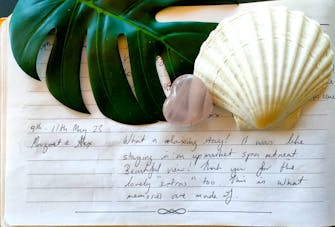 9th - 11th May 23
What a relaxing stay! It was like
staying in an upmarket spa retreat.
Beautiful view! Thank you for the
lovely "extras" too. This is what
memories are made of